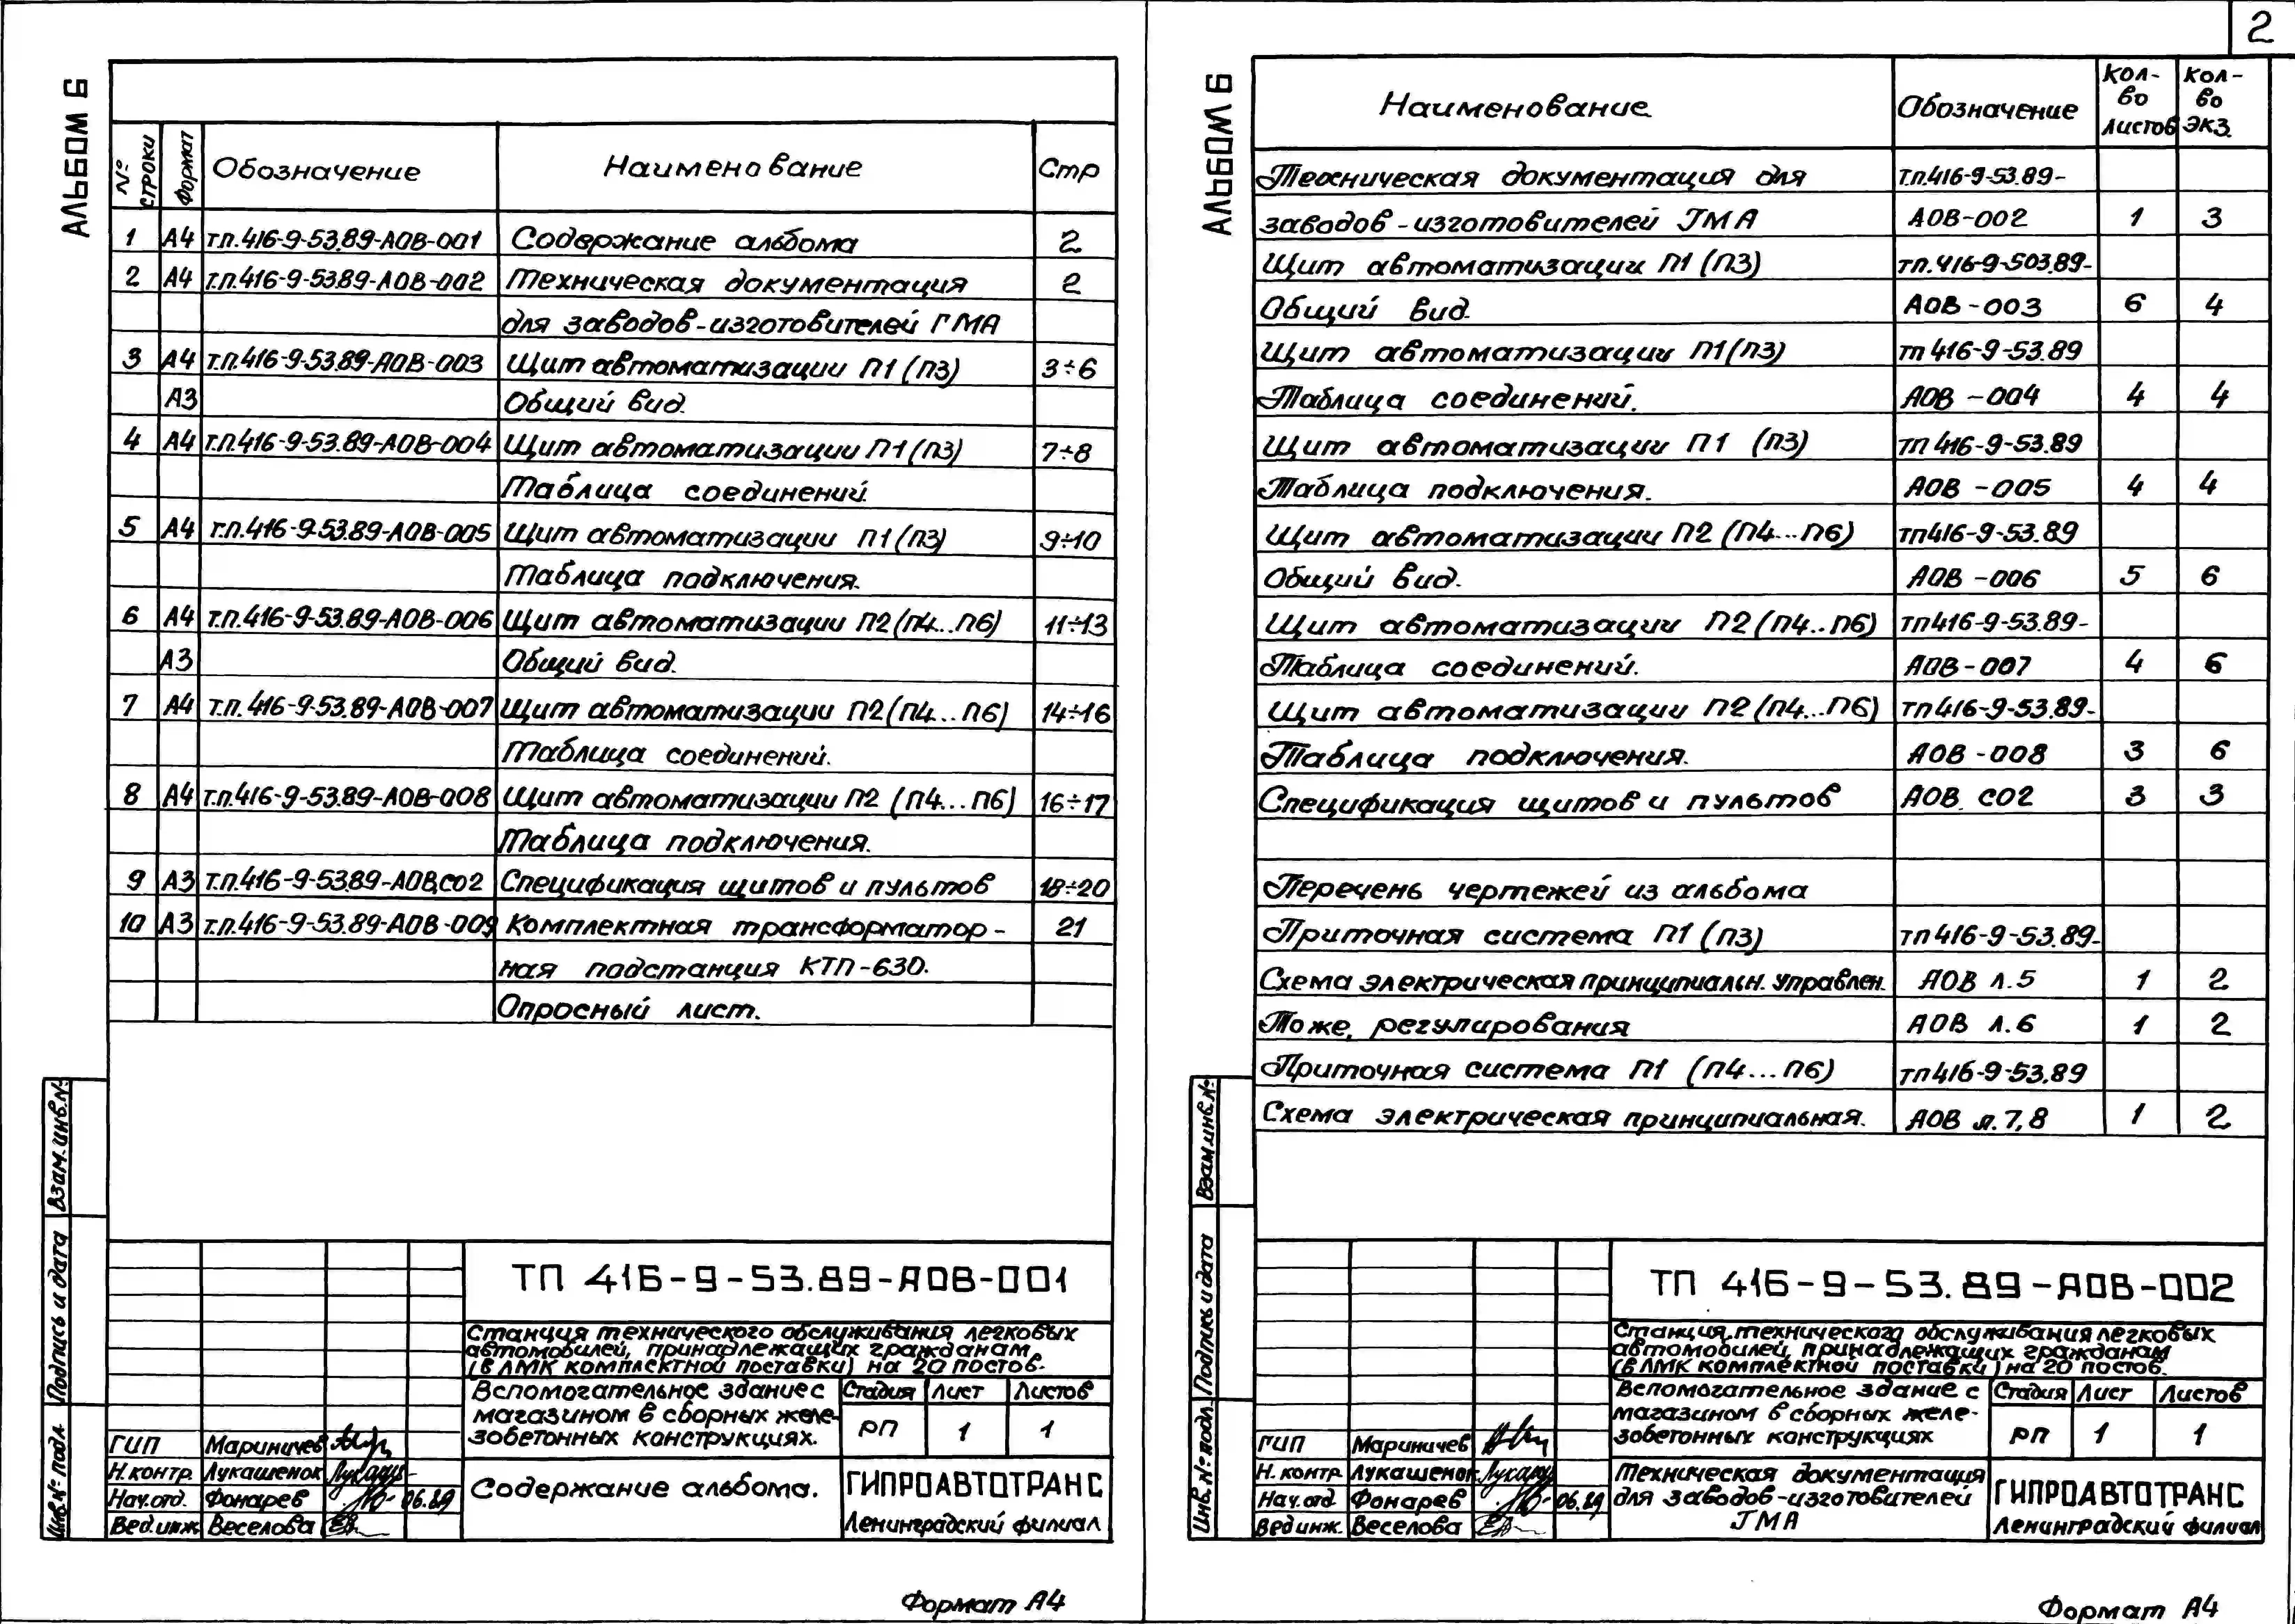 2
АЛЬБОМ 6
№ строки Формат Обозначение Наименование Стр
1 А4 т.п.416-9-53.89-АОВ-001 Содержание альбома 2
2 А4 т.п.416-9-53.89-АОВ-002 Техническая документация 2
для заводов-изготовителей ГМА
3 А4 т.п.416-9-53.89-АОВ-003 Щит автоматизации П1(П3) 3÷6
А3 Общий вид.
4 А4 т.п.416-9-53.89-АОВ-004 Щит автоматизации П1(П3) 7÷8
Таблица соединений.
5 А4 т.п.416-9-53.89-АОВ-005 Щит автоматизации П1(П3) 9÷10
Таблица подключения.
6 А4 т.п.416-9-53.89-АОВ-006 Щит автоматизации П2(П4...П6) 11÷13
А3 Общий вид.
7 А4 т.п.416-9-53.89-АОВ-007 Щит автоматизации П2(П4...П6) 14÷16
Таблица соединений.
8 А4 т.п.416-9-53.89-АОВ-008 Щит автоматизации П2 (П4...П6) 16÷17
Таблица подключения.
9 А3 т.п.416-9-53.89-АОВ.С02 Спецификация щитов и пультов 18÷20
10 А3 т.п.416-9-53.89-АОВ-009 Комплектная трансформатор- 21
ная подстанция КТП-630.
Опросный лист.
Взам.инв.№
Подпись и дата
Инв.№ подл
ТП 416-9-53.89-АОВ-001
Станция технического обслуживания легковых
автомобилей, принадлежащих гражданам
(в ЛМК комплектной поставки) на 20 постов.
Вспомогательное здание с
магазином в сборных желе-
зобетонных конструкциях.
Стадия Лист Листов
РП 1 1
ГИП Мариничев
Н.контр. Лукашенок
Нач.отд. Фонарев 06.89
Вед.инж. Веселова
Содержание альбома.
ГИПРОАВТОТРАНС
Ленинградский филиал
Формат А4
АЛЬБОМ 6
Наименование Обозначение Кол-во листов Кол-во экз.
Техническая документация для т.п.416-9-53.89-
заводов-изготовителей ГМА АОВ-002 1 3
Щит автоматизации П1 (П3) тп.416-9-503.89-
Общий вид. АОВ-003 6 4
Щит автоматизации П1(П3) тп 416-9-53.89
Таблица соединений. АОВ-004 4 4
Щит автоматизации П1 (П3) тп 416-9-53.89
Таблица подключения. АОВ-005 4 4
Щит автоматизации П2 (П4...П6) тп416-9-53.89
Общий вид. АОВ-006 5 6
Щит автоматизации П2(П4..П6) тп416-9-53.89-
Таблица соединений. АОВ-007 4 6
Щит автоматизации П2(П4...П6) тп416-9-53.89-
Таблица подключения. АОВ-008 3 6
Спецификация щитов и пультов АОВ. С02 3 3
Перечень чертежей из альбома
Приточная система П1 (П3) тп416-9-53.89-
Схема электрическая принципиальн. управлен. АОВ л.5 1 2
Тоже, регулирования АОВ л.6 1 2
Приточная система П1 (П4...П6) тп416-9-53.89
Схема электрическая принципиальная. АОВ л.7,8 1 2
Взам.инв.№
Подпись и дата
Инв.№ подл.
ТП 416-9-53.89-АОВ-002
Станция технического обслуживания легковых
автомобилей, принадлежащих гражданам
(в ЛМК комплектной поставки) на 20 постов.
Вспомогательное здание с
магазином в сборных желе-
зобетонных конструкциях
Стадия Лист Листов
РП 1 1
ГИП Мариничев
Н. контр. Лукашенок
Нач.отд. Фонарев 06.89
Вед.инж. Веселова
Техническая документация
для заводов-изготовителей
ГМА
ГИПРОАВТОТРАНС
Ленинградский филиал
Формат А4